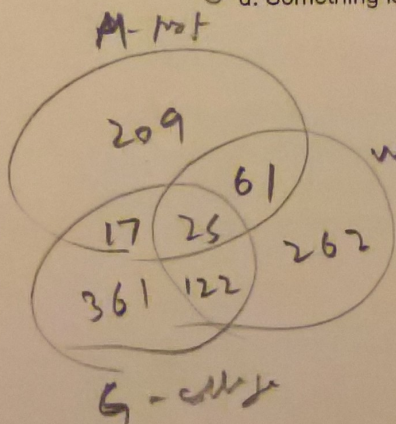 d. Something is
209
61
17 25
262
361 122
G - college